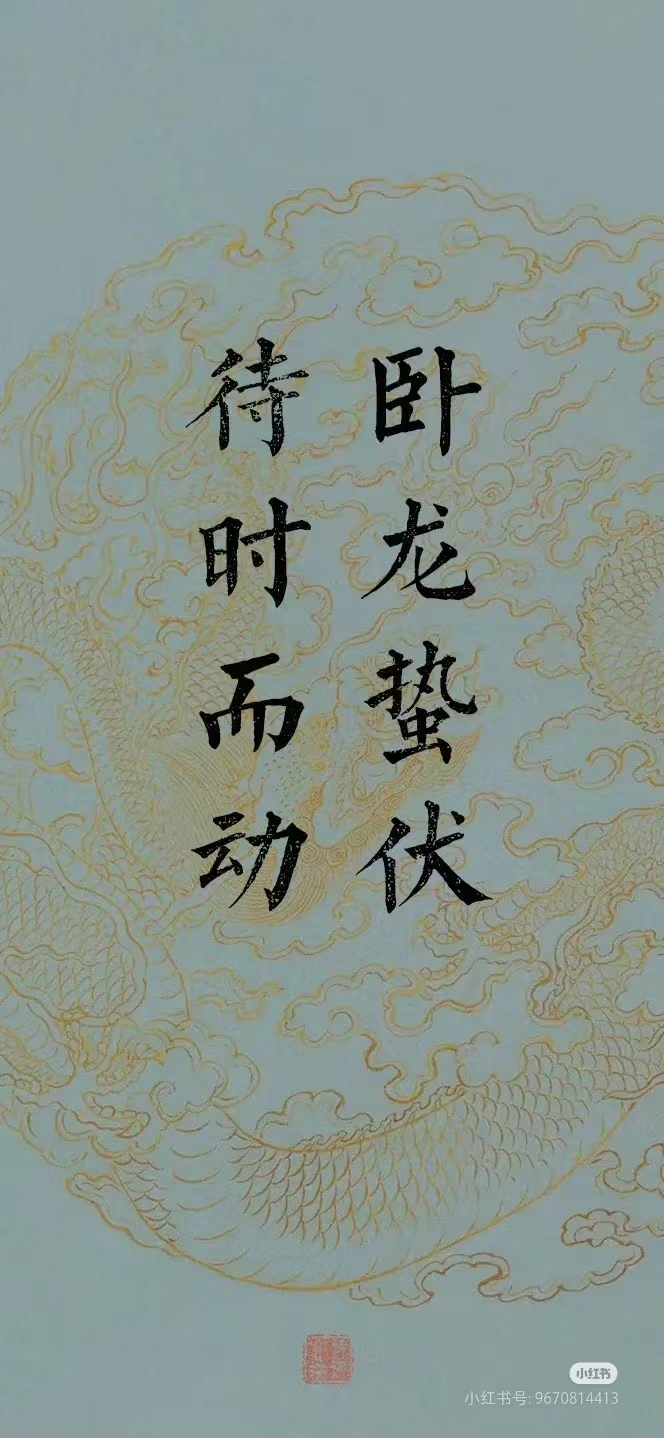 卧龙蛰伏
待时而动
小红书
小红书号: 9670814413